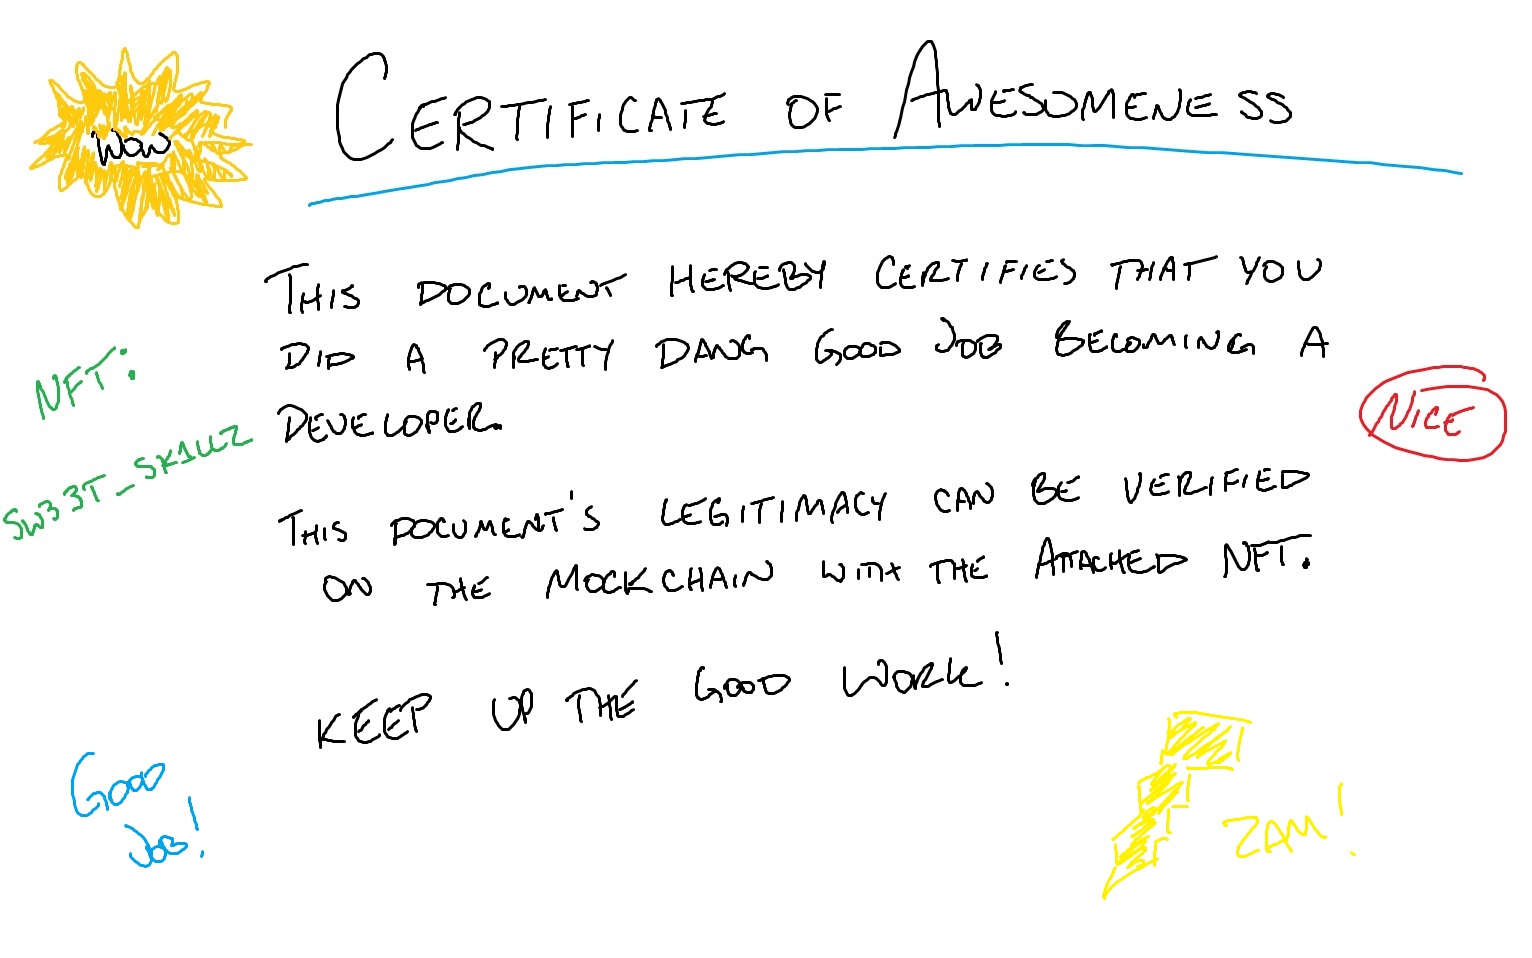 WOW
CERTIFICATE OF AWESOMENESS
THIS DOCUMENT HEREBY CERTIFIES THAT YOU
DID A PRETTY DANG GOOD JOB BECOMING A
DEVELOPER.
NFT:
SW33T_SK1LLZ
NICE
THIS DOCUMENT'S LEGITIMACY CAN BE VERIFIED
ON THE MOCKCHAIN WITH THE ATTACHED NFT.
KEEP UP THE GOOD WORK!
GOOD
JOB!
ZAM!